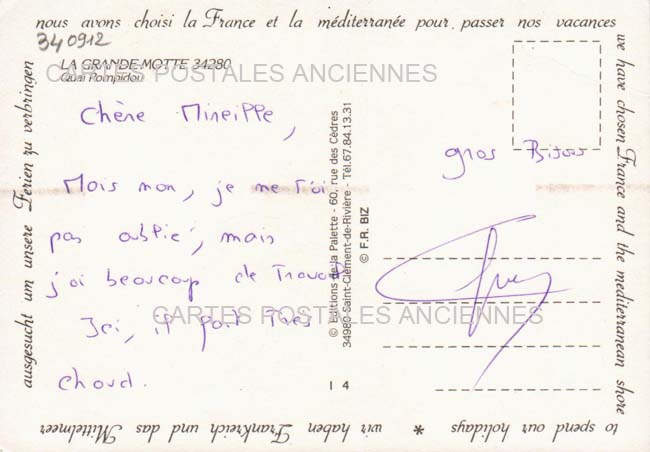 nous avons choisi la France et la méditerranée pour passer nos vacances
we have chosen France and the mediterranean shore
to spend our holidays * wir haben Frankreich und das Mittelmeer
ausgesucht um unsere Ferien zu verbringen
340912
LA GRANDE-MOTTE 34280
Quai Pompidou
CARTES POSTALES ANCIENNES
Chère Mireille,
Mais non, je ne t'ai
pas oublié, mais
j'ai beaucoup de travail
Ici, il fait très
chaud.
© Editions de la Palette - 60, rue des Cèdres
34980 Saint-Clément-de-Rivière - Tél.67.84.13.31
© F.R. BIZ
I 4
gros Bisous
CARTES POSTALES ANCIENNES